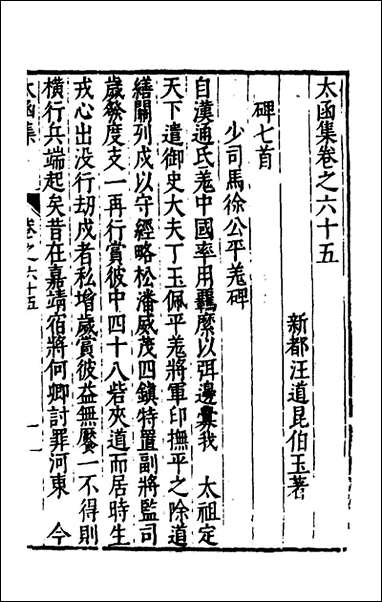 太函集卷之六十五
新都汪道昆伯玉著
碑七首
少司馬徐公平羌碑
自漢通氐羌中國率用羈縻以弭邊釁我　太祖定
天下遣御史大夫丁玉佩平羌將軍印撫平之除道
繕關列戍以守經略松潘威茂四鎮特置副將監司
歲發度支一再行賞彼中四十八砦夾道而居時生
戎心出没行刼戍者私增歲賞彼益無饜一不得則
橫行兵端起矣昔在嘉靖宿將何卿討罪河東　今
太函集
卷之六十五
一